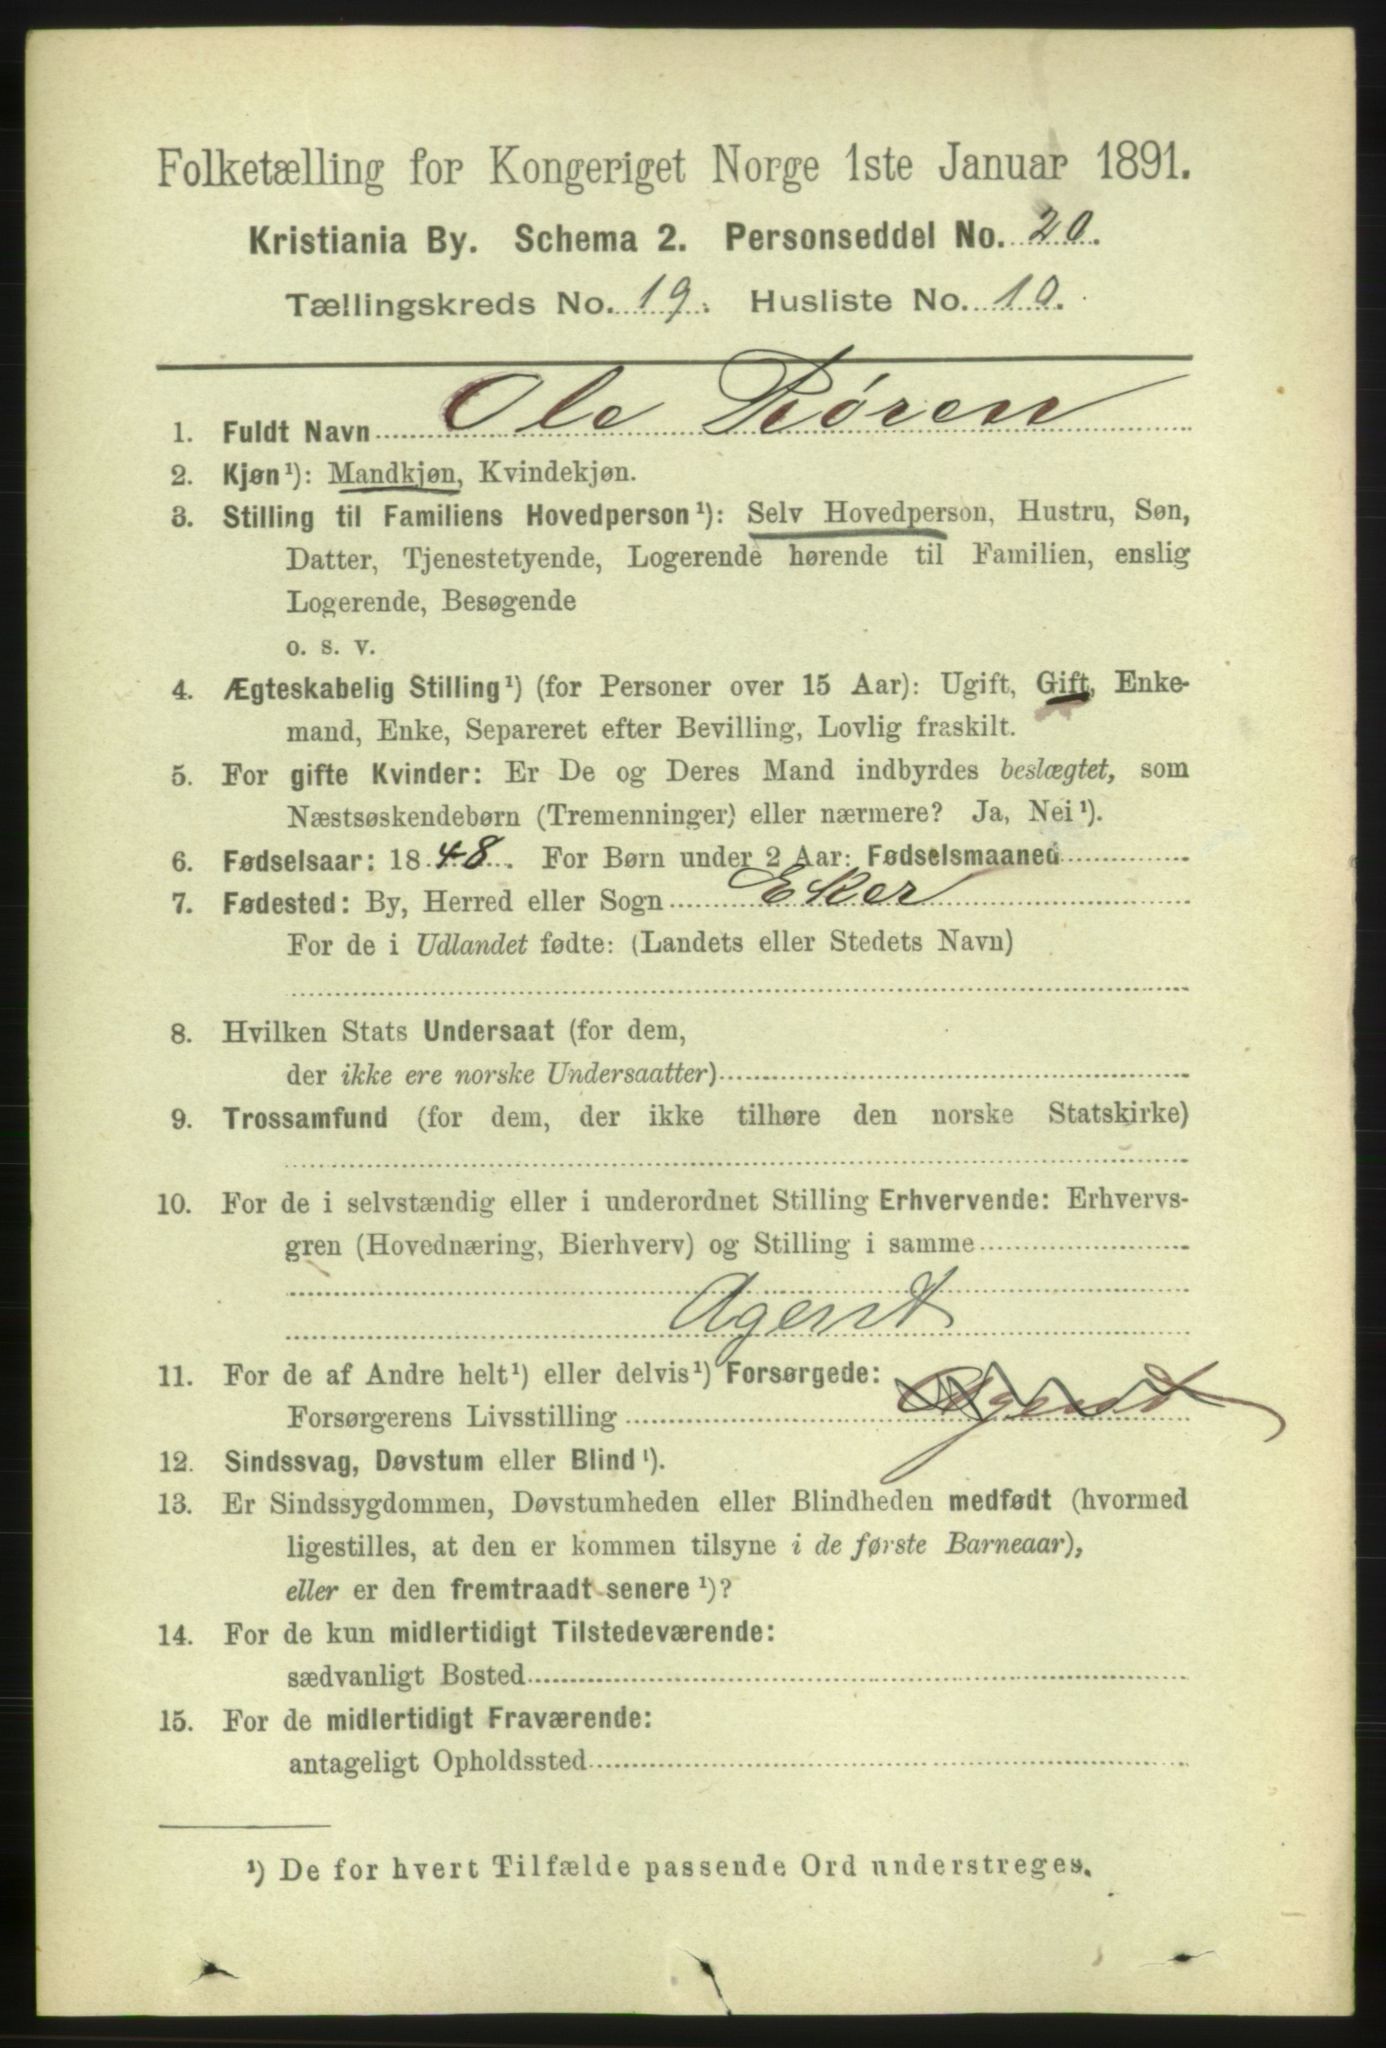 Folketælling for Kongeriget Norge 1ste Januar 1891.
Kristiania By. Schema 2. Personseddel No. 20.
Tællingskreds No. 19. Husliste No. 10.
1. Fuldt Navn Ole Røren
2. Kjøn¹): Mandkjøn, Kvindekjøn.
3. Stilling til Familiens Hovedperson¹): Selv Hovedperson, Hustru, Søn,
Datter, Tjenestetyende, Logerende hørende til Familien, enslig
Logerende, Besøgende
o. s. v.
4. Ægteskabelig Stilling¹) (for Personer over 15 Aar): Ugift, Gift, Enke-
mand, Enke, Separeret efter Bevilling, Lovlig fraskilt.
5. For gifte Kvinder: Er De og Deres Mand indbyrdes beslægtet, som
Næstsøskendebørn (Tremenninger) eller nærmere? Ja, Nei¹).
6. Fødselsaar: 1848. For Børn under 2 Aar: Fødselsmaaned
7. Fødested: By, Herred eller Sogn Eker
For de i Udlandet fødte: (Landets eller Stedets Navn)
8. Hvilken Stats Undersaat (for dem,
der ikke ere norske Undersaatter)
9. Trossamfund (for dem, der ikke tilhøre den norske Statskirke)
10. For de i selvstændig eller i underordnet Stilling Erhvervende: Erhvervs-
gren (Hovednæring, Bierhverv) og Stilling i samme
Agent
11. For de af Andre helt¹) eller delvis¹) Forsørgede:
Forsørgerens Livsstilling Agent
12. Sindssvag, Døvstum eller Blind¹).
13. Er Sindssygdommen, Døvstumheden eller Blindheden medfødt (hvormed
ligestilles, at den er kommen tilsyne i de første Barneaar),
eller er den fremtraadt senere¹)?
14. For de kun midlertidigt Tilstedeværende:
sædvanligt Bosted
15. For de midlertidigt Fraværende:
antageligt Opholdssted
¹) De for hvert Tilfælde passende Ord understreges.